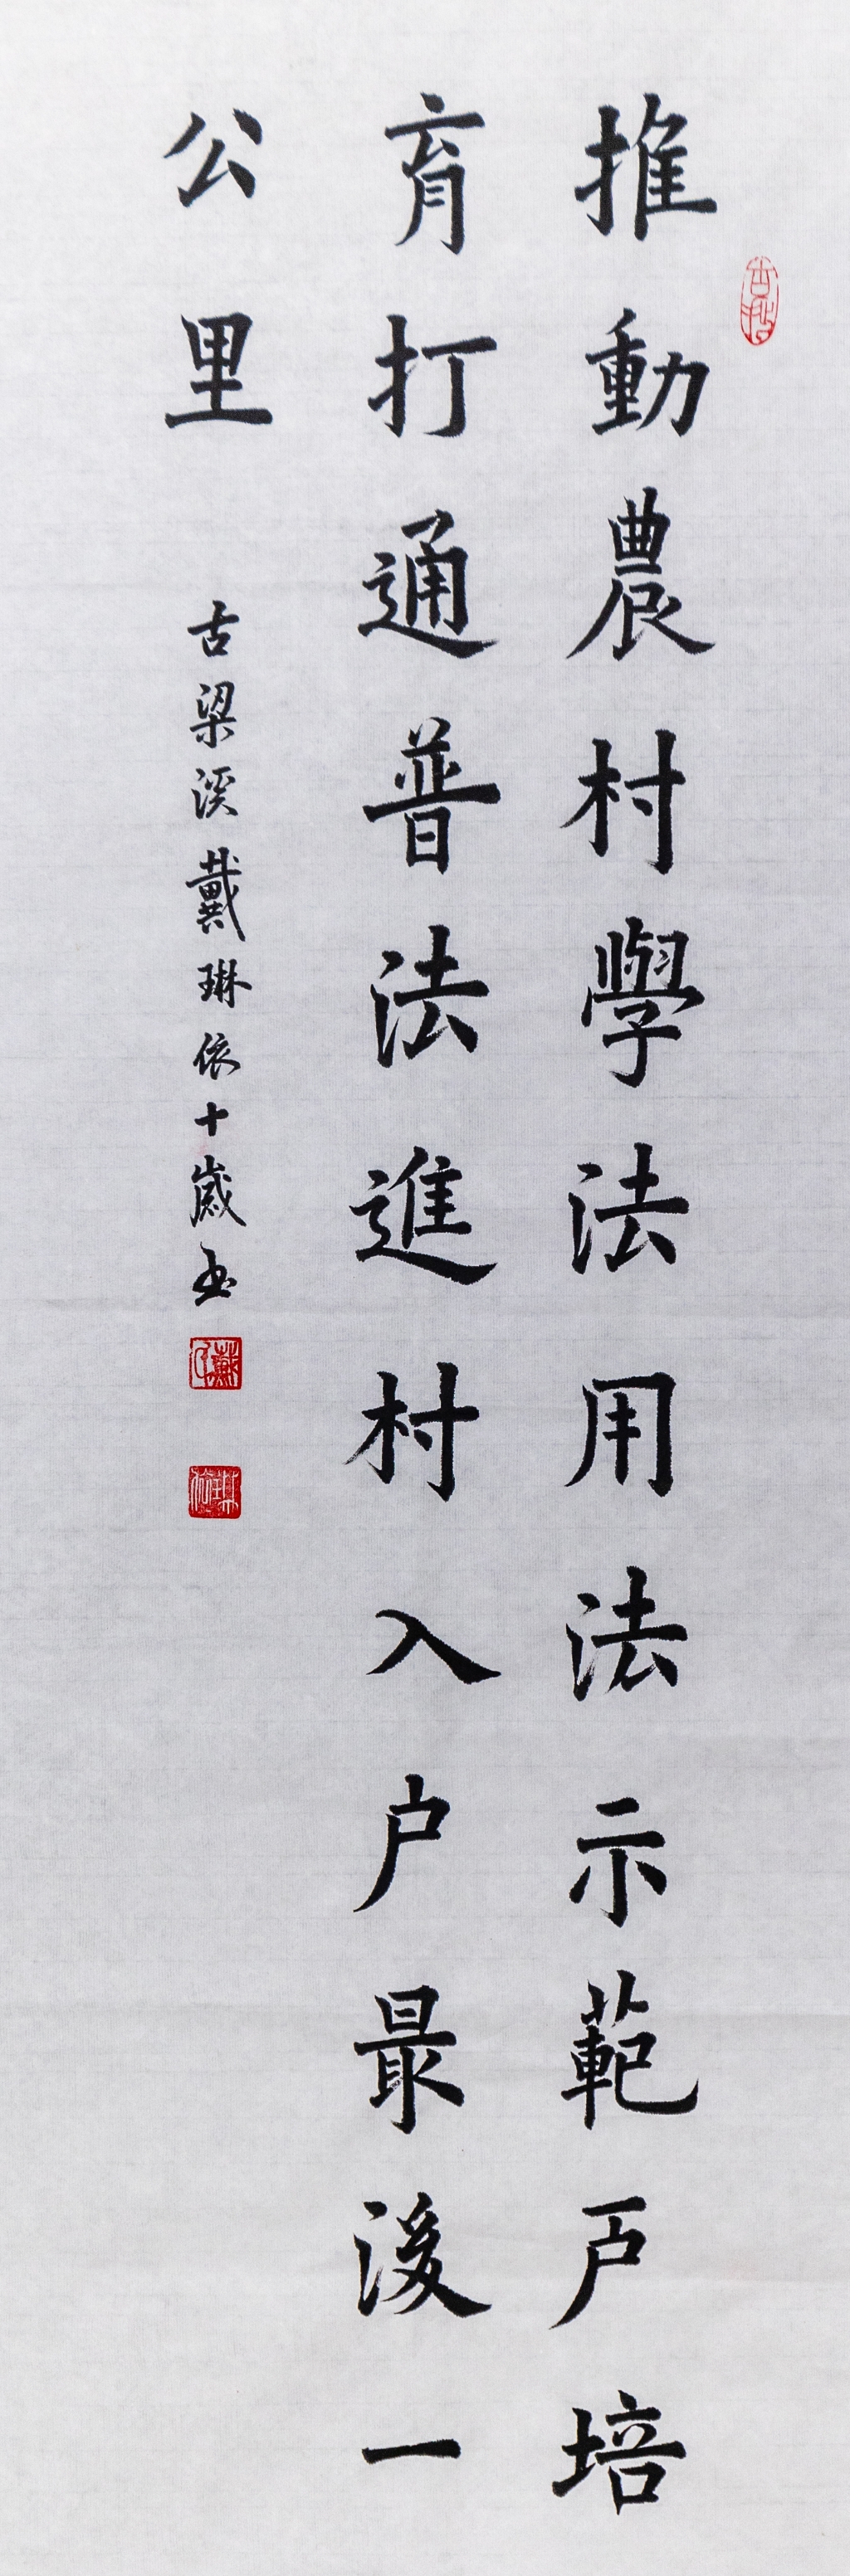 推動農村學法用法示範戶培
育打通普法進村入户最後一
公里
古梁溪戴琳依十歲書